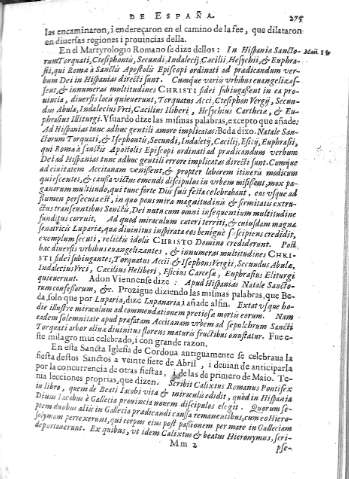 DE ESPAÑA. 275
las encaminaron, i endereçaron en el camino de la fee, que dilataron
en diuersas regiones i prouincias della.
En el Martyrologio Romano se dize dellos: In Hispania Sancto-
rum Torquati, Ctesiphontis, Secundi, Indaletij, Cæcilij, Hesychij, & Euphra-
sij, qui Romæ à Sanctis Apostolis Episcopi ordinati ad prædicandum ver-
bum Dei in Hispanias directi sunt. Cumque varijs vrbibus euangelizas-
sent, & innumeras multitudines CHRISTI fidei subiugassent in ea pro-
uincia, diuersis locis quieuerunt, Torquatus Acci, Ctesiphon Vergij, Secun-
dus Abulæ, Indaletius Vrci, Cæcilius Iliberi, Hesychius Cartheiæ, & Eu-
phrasius Illiturgi. Vsuardo dize las mismas palabras, excepto que añade:
Ad Hispanias tunc adhuc gentili amore implicitas: Beda dixo: Natale San-
ctorum Torquati, & Isephontis, Secundi, Indaletij, Cæcilij, Esicij, Euphrasij,
qui Romæ à sanctis Apostolis Episcopi ordinati ad prædicandum verbum
Dei ad Hispanias tunc adhuc gentili errore implicatas directi sunt. Cumque
ad ciuitatem Accitanam venissent, & propter laborem itineris modicum
quiescentes, & causa victus emendi discipulos in vrbem misissent, mox pa-
ganorum multitudo, qui tunc forte Dijs sui festa celebrabant, eos vsque ad
flumen persecuta est, in quo pons mira magnitudinis & firmitatis extru-
ctus transeuntibus Sanctis, Dei nutu cum omni insequentium multitudine
funditus corruit. Ad quod miraculum cæteri territi, & cuiusdam magnæ
senatricis Luparia, quæ diuinitus inspirata eos benignè suscipiens credidit,
exemplum secuti, relictis idolis CHRISTO Domino crediderunt. Post
hæc diuersis vrbibus euangelizantes, & innumeras multitudines CHRI-
STI fidei subiugantes, Torquatus Acci, & Isephons Vergij, Secundus Abulæ,
Indaletius Vrci, Cæcilius Heliberi, Esicius Carcesæ, Euphrasius Eliturgi
quieuerunt. Adon Viennense dize: Apud Hispanias Natale Sancto-
rum confessorum, &c. Prozigue diziendo las mismas palabras, que Be-
da, solo que por Luparia, dize Lupanaria i añade al fin. Extat vsque ho-
die illustre miraculum ad commendationem pretiosæ mortis eorum. Nam
eadem solemnitate apud præfatam Accitanam vrbem ad sepulchrum Sancti
Torquati arbor oliuæ diuinitus florens maturis fructibus onustatur. Fue e-
ste milagro mui celebrado, i con grande razon.
En esta Sancta Iglesia de Cordoua antiguamente se celebraua la
fiesta destos Sanctos a veinte siete de Abril, i deuian de anticiparla
por la concurrencia de otras fiestas, las de primero de Maio. Te-
nia lecciones proprias, que dizen. Scribit Calixtus Romanus Pontifex
in libro, quem de Beati Iacobi vita & miraculis edidit, quòd in Hispania
Diuus Iacobus à Gallæcia prouincia nouem discipulos elegit. Quorum se-
ptem duobus alijs in Gallæcia prædicandi causa remanentibus, cum eo Hiero-
solymam perrexerunt, qui corpus eius post passionem per mare in Gallæciam
deportauerunt. Ex quibus, vt idem Calixtus & beatus Hieronymus, scri-
Mm 2 pse-